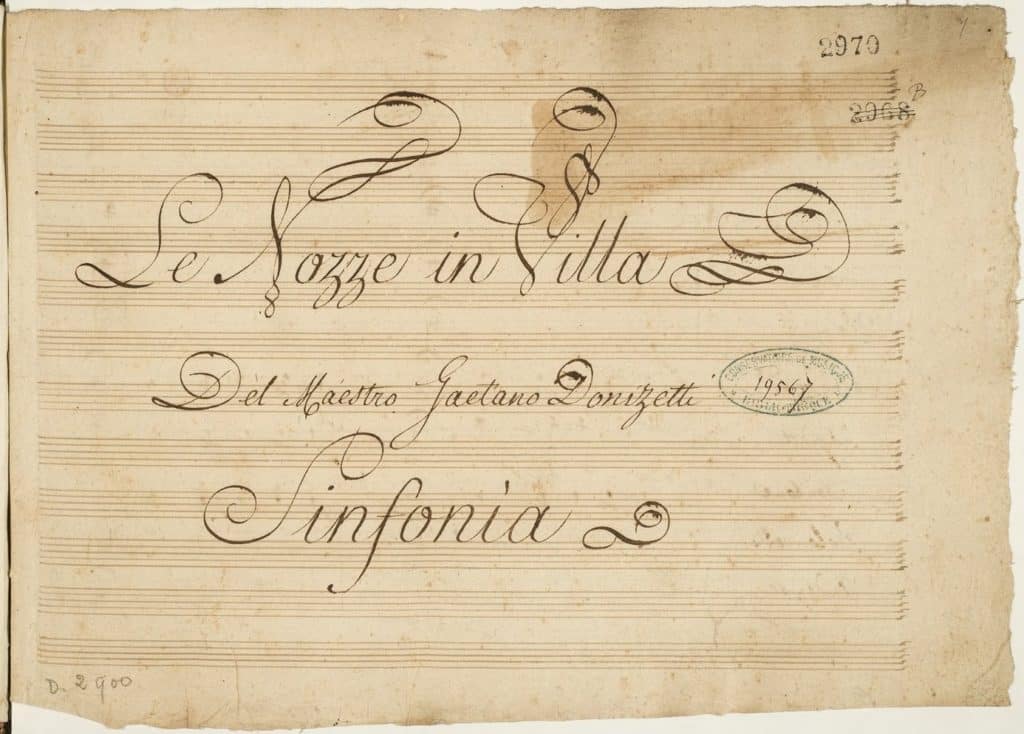 2970
2968 B
Le Nozze in Villa
Del Maéstro Gaetano Donizetti
CONSERVATOIRE DE MUSIQUE
19567
BIBLIOTHÈQUE
Sinfonia
D. 2900